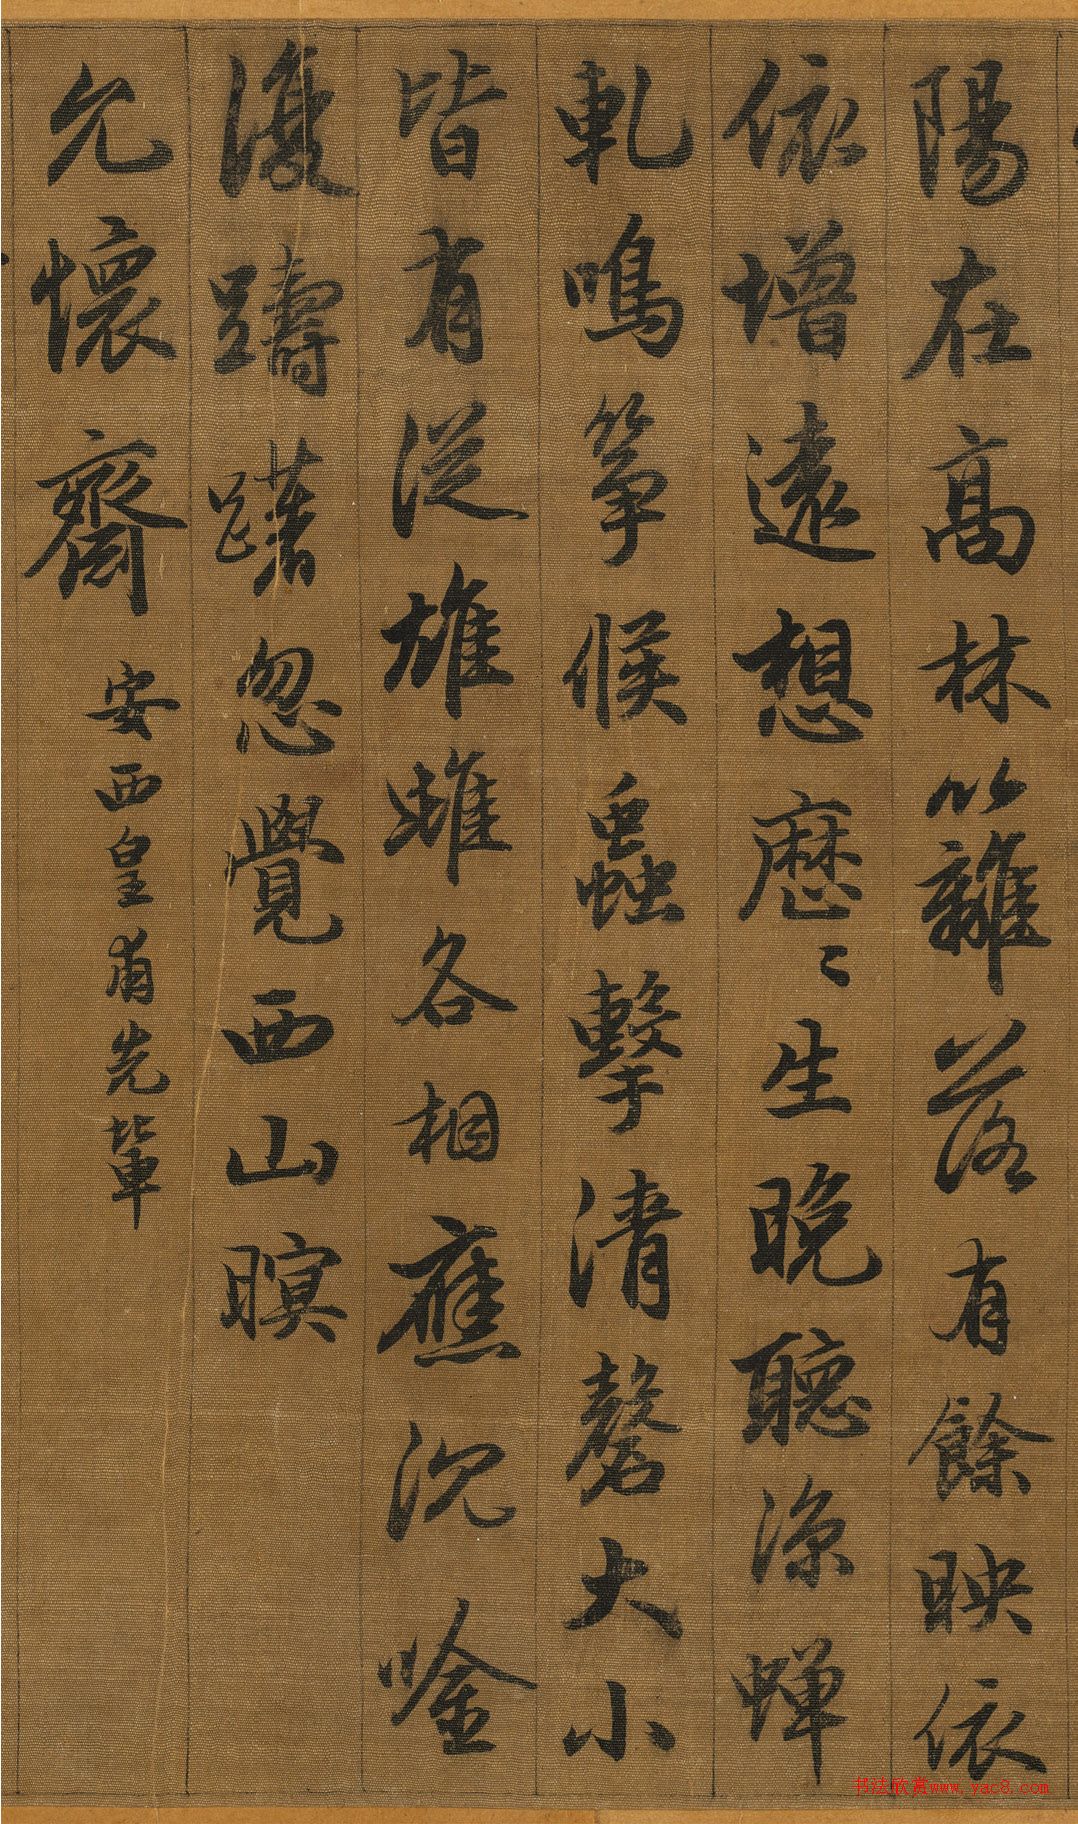 陽在高林籬落有餘映依
依增遠想歷〻生晚聽涼蟬
軋鳴箏候蟲擊清磬大小
皆有從雄雌各相應沉唫
復躊躇忽覺西山暝
允懷齋
安西皇甫先輩
书法欣赏www.yac8.com